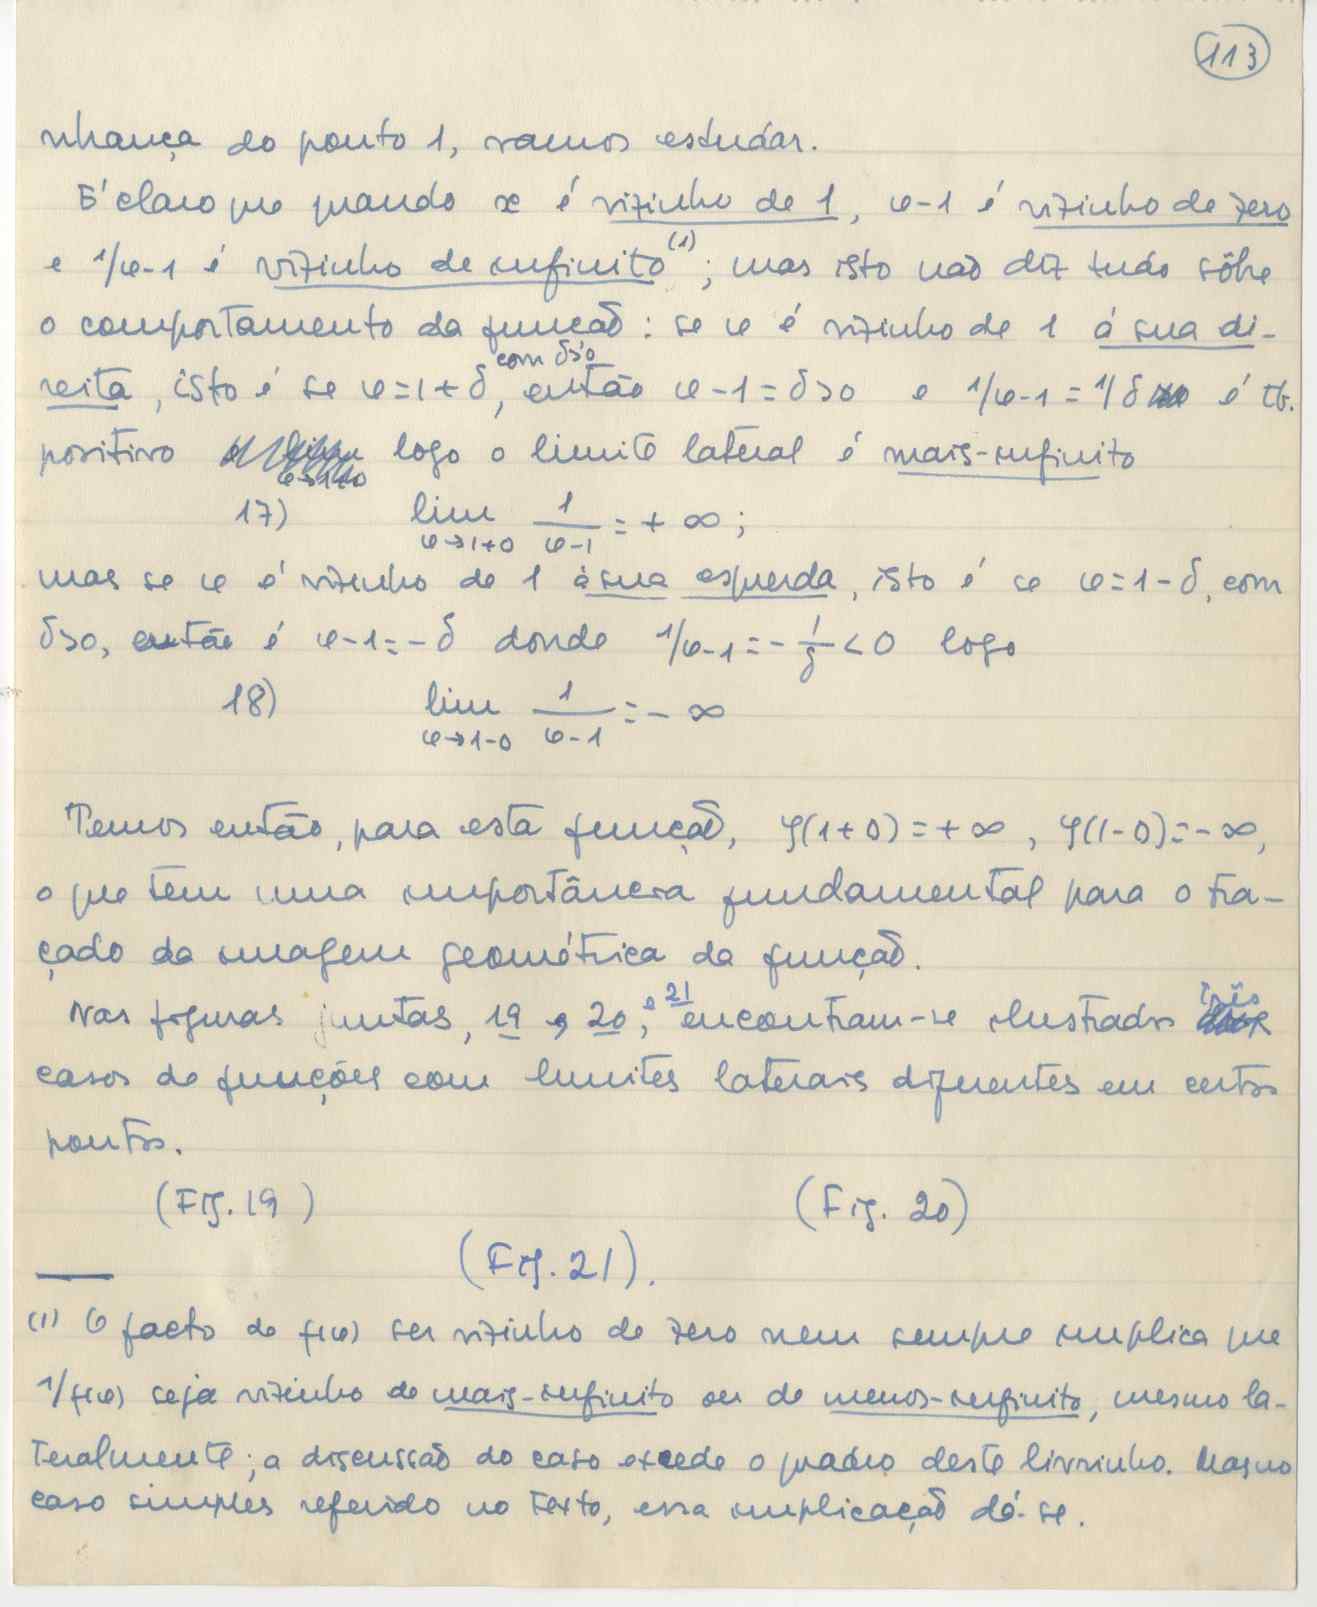 113
nhança do ponto 1, vamos estudar.
É claro que quando x é vizinho de 1, x-1 é vizinho de zero
e 1/x-1 é vizinho de infinito (1); mas isto não diz tudo sôbre
o comportamento da função: se x é vizinho de 1 à sua di-
reita, isto é se x=1+δ, com δ>0 então x-1=δ>0 e 1/x-1=1/δ é tb.
positivo logo o limite lateral é mais-infinito
17) lim x→1+0 1/x-1 = +∞;
mas se x é vizinho de 1 à sua esquerda, isto é se x=1-δ, com
δ>0, então é x-1=-δ donde 1/x-1=-1/δ<0 logo
18) lim x→1-0 1/x-1 = -∞
Temos então, para esta função, φ(1+0)=+∞, φ(1-0)=-∞,
o que tem uma importância fundamental para o tra-
çado da imagem geométrica da função.
Nas figuras juntas, 19, 20, e 21 encontram-se ilustrados três
casos de funções com limites laterais diferentes em certos
pontos.
(Fig. 19) (Fig. 20)
(Fig. 21).
(1) O facto de f(x) ser vizinho de zero nem sempre implica que
1/f(x) seja vizinho de mais-infinito ou de menos-infinito, mesmo la-
teralmente; a discussão do caso excede o quadro deste livrinho. Mas no
caso simples referido no texto, essa implicação dá-se.